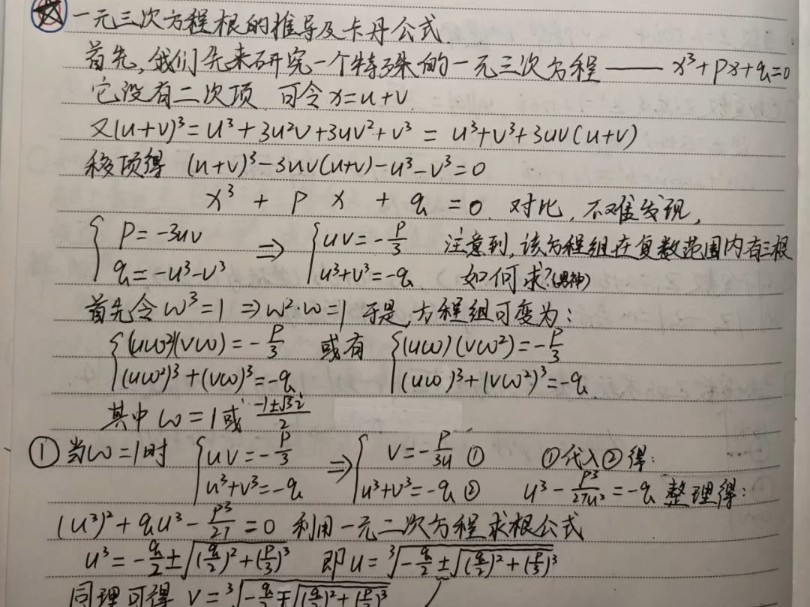 一元三次方程根的推导及卡丹公式.
首先,我们先来研究一个特殊的一元三次方程——x³+px+q=0
它没有二次项 可令x=u+v
又(u+v)³=u³+3u²v+3uv²+v³=u³+v³+3uv(u+v)
移项得 (u+v)³-3uv(u+v)-u³-v³=0
x³+px+q=0. 对比,不难发现,
{p=-3uv ⇒ {uv=-p/3 注意到,该方程组在复数范围内有三根
{q=-u³-v³ {u³+v³=-q. 如何求?
首先令ω³=1⇒ω²·ω=1 于是,方程组可变为:
{(uω²)(vω)=-p/3 或有 {(uω)(vω²)=-p/3
{(uω²)³+(vω)³=-q {(uω)³+(vω²)³=-q.
其中ω=1或(-1±√3i)/2
①当ω=1时 {uv=-p/3 ⇒ {v=-p/3u ① ①代入②得:
{u³+v³=-q {u³+v³=-q ② u³-p³/27u³=-q 整理得:
(u³)²+qu³-p³/27=0 利用一元二次方程求根公式
u³=-q/2±√((q/2)²+(p/3)³) 即u=³√(-q/2±√((q/2)²+(p/3)³))
同理可得 v=³√(-q/2∓√((q/2)²+(p/3)³))